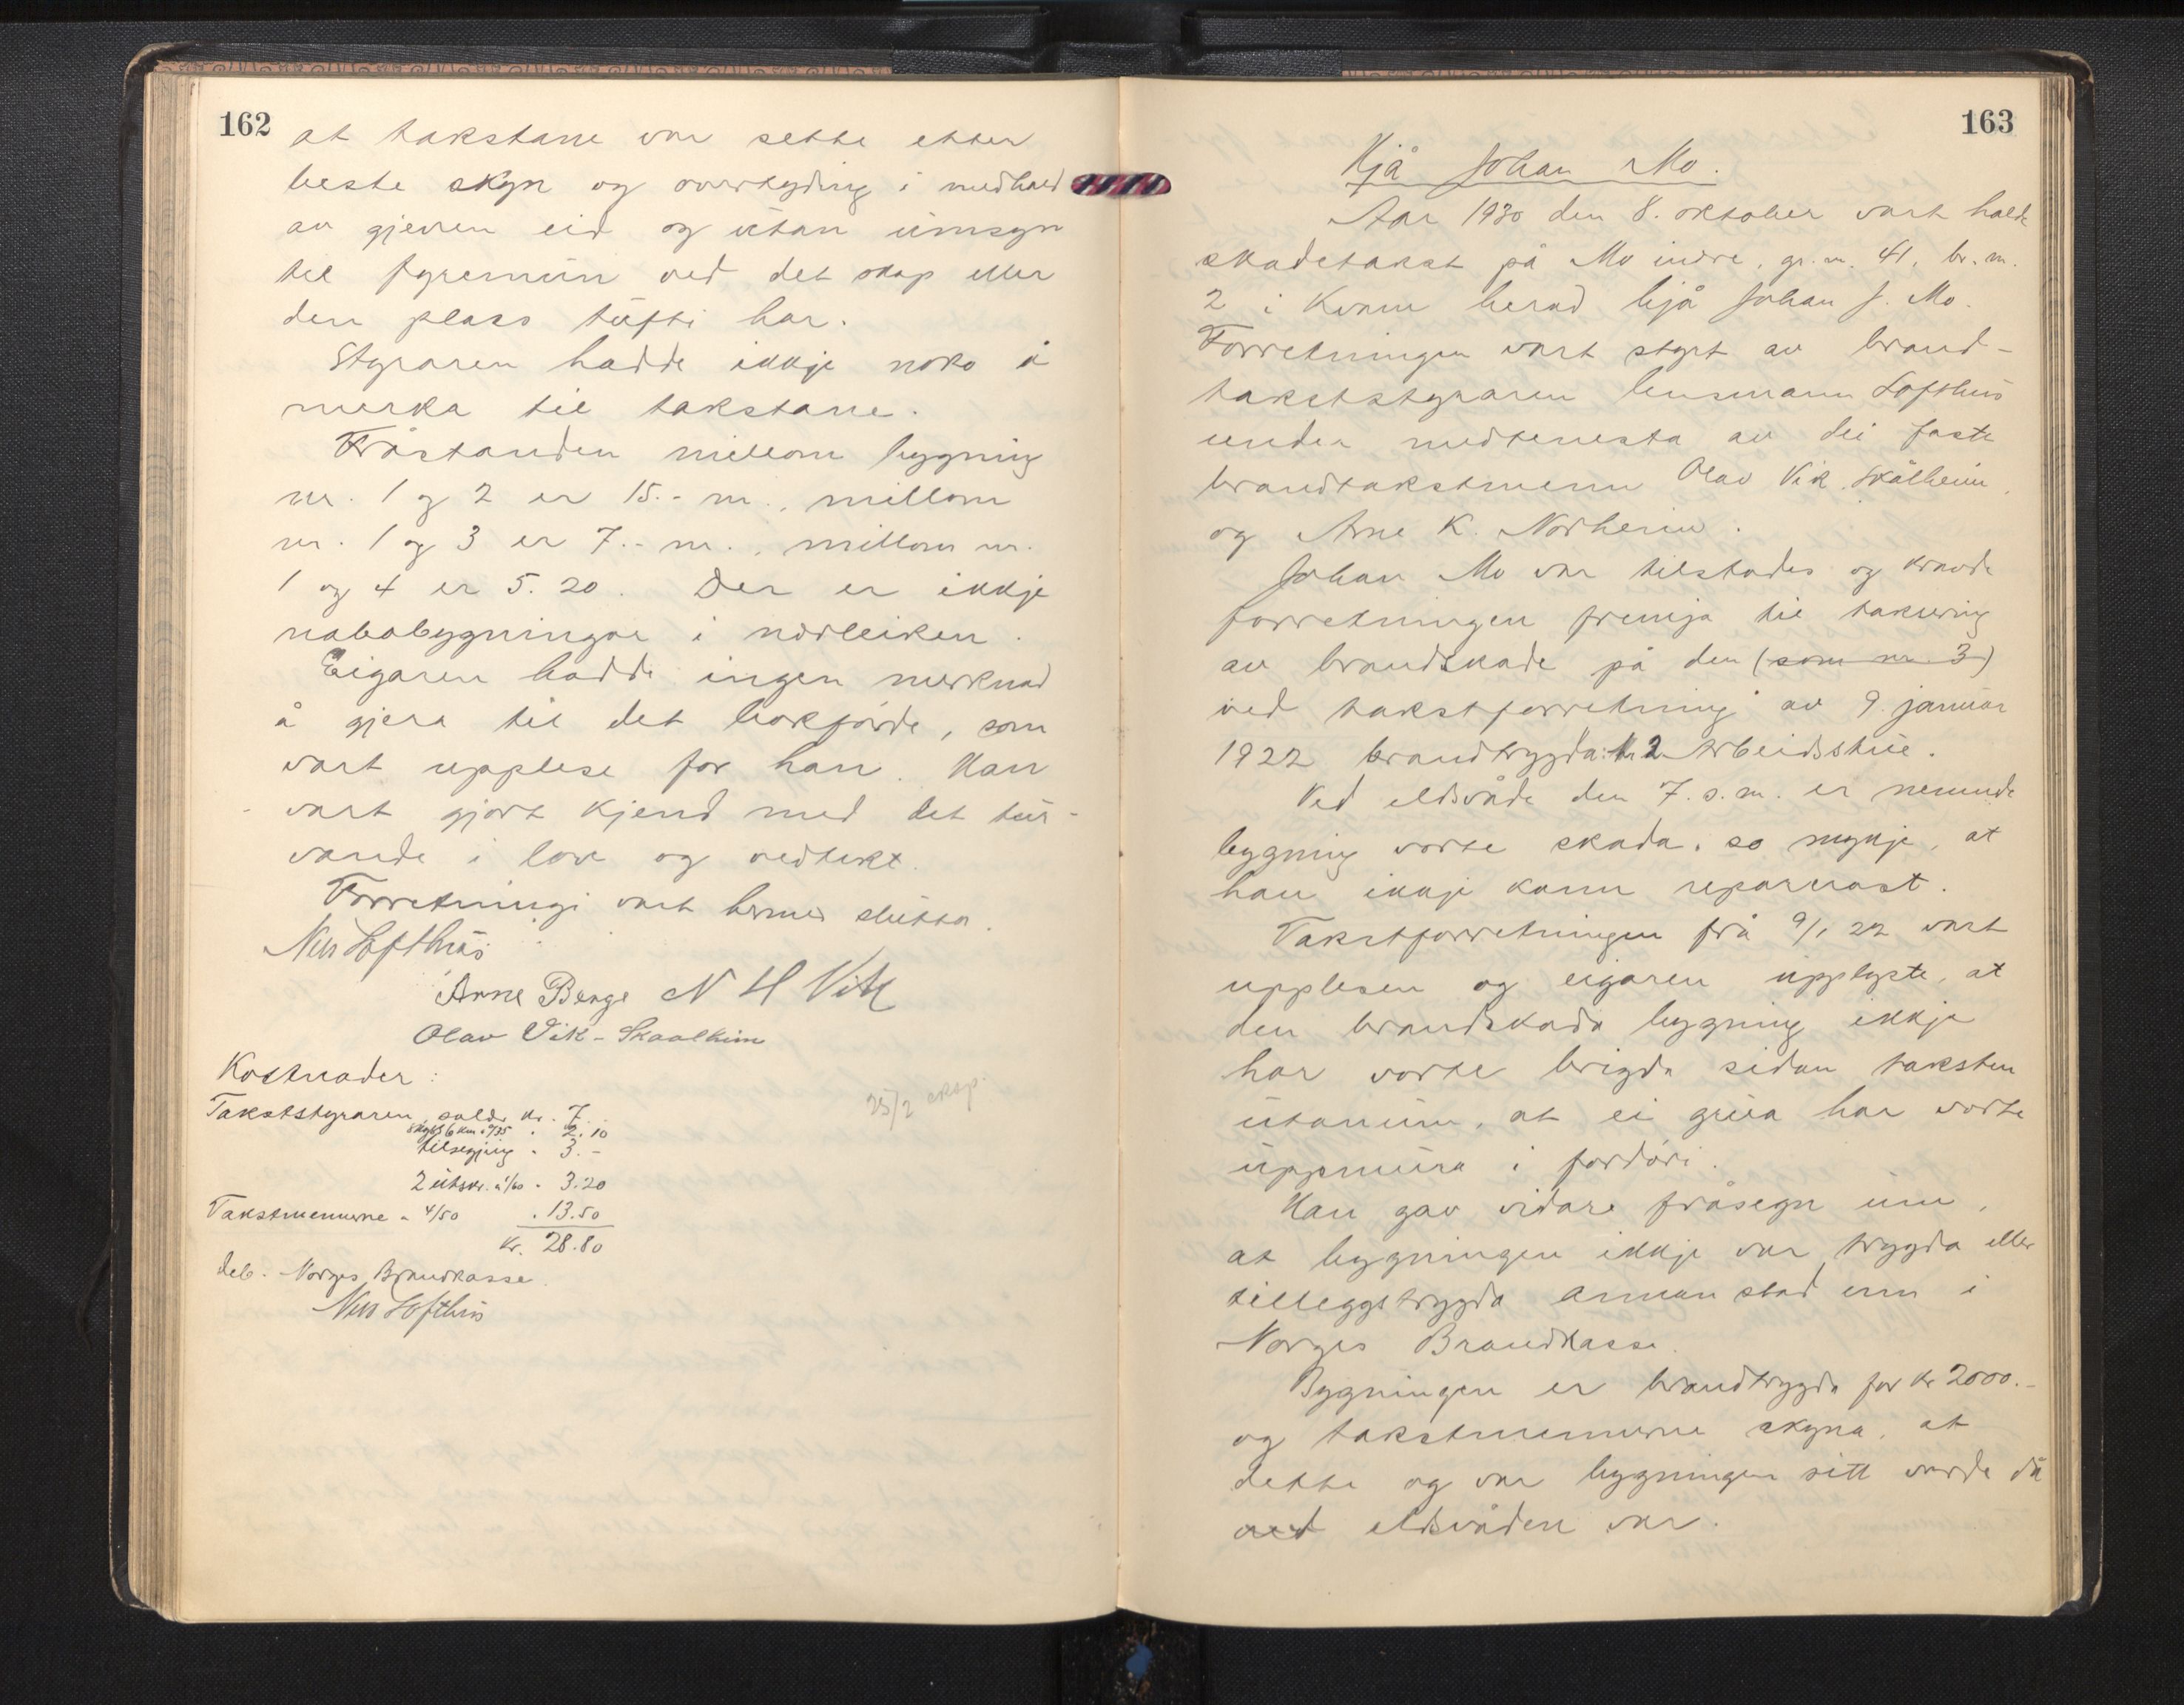 162
at takstane var sette etter
beste skyn og overtyding i medhald
av gjeven eid og utan umsyn
til fyremun ved det skap eller
den plass tufti har.
Styraren hadde ikkje noko å
merka til takstane.
Fråstanden millom bygning
nr. 1 og 2 er 15.- m., millom
nr. 1 og 3 er 7.- m., millom nr.
1 og 4 er 5.20. Der er ikkje
nabobygningar i nærleiken.
Eigaren hadde ingen merknad
å gjera til det bokførde, som
vart upplese for han. Han
vart gjort kjend med det tur-
vande i lov og vedtekt.
Forretningi vart hermed slutta.
Nils Lofthus
Arne Berge N H Vik
Olav Vik - Skaalheim
Kostnader:
Takststyraren, salær kr. 7.-
skyss 6 km à 0/35 " 2.10
tilsegjing " 3.-
2 utskr. à 1/60 " 3.20
Takstmennerne à 4/50 " 13.50
Kr. 28.80
25/2 eksp.
deb. Norges Brandkasse.
Nils Lofthus
163
Hjå Johan Mo.
Aar 1930 den 8. oktober vart halde
skadetakst på Mo indre, gr.nr. 41, br.nr.
2 i Kvam herad hjå Johan J. Mo.
Forretningen vart styrt av brand-
takststyraren lensmann Lofthus
under medtenesta av dei faste
brandtakstmenn Olav Vik Skålheim,
og Arne K. Norheim.
Johan Mo var tilstades og kravde
forretningen fremja til taksering
av brandskade på den (som nr. 3)
ved takstforretning av 9. januar
1922 brandtrygda: Nr 2 Arbeidsstue.
Ved eldsvåde den 7. s.m. er nemnde
bygning vorte skada, so mykje, at
han ikkje kann reparerast.
Takstforretningen frå 9/1 22 vart
upplesen og eigaren upplyste, at
den brandskada bygning ikkje
har vorte brigda sidan taksten
utanum, at ei grua har vorte
uppmura i fordøri.
Han gav vidare fråsegn um,
at bygningen ikkje var trygda eller
tilleggstrygda annan stad enn i
Norges Brandkasse.
Bygningen er brandtrygda for kr 2000.-
og takstmennerne skyna, at
dette og var bygningen sitt verde då
ved eldsvåden var.